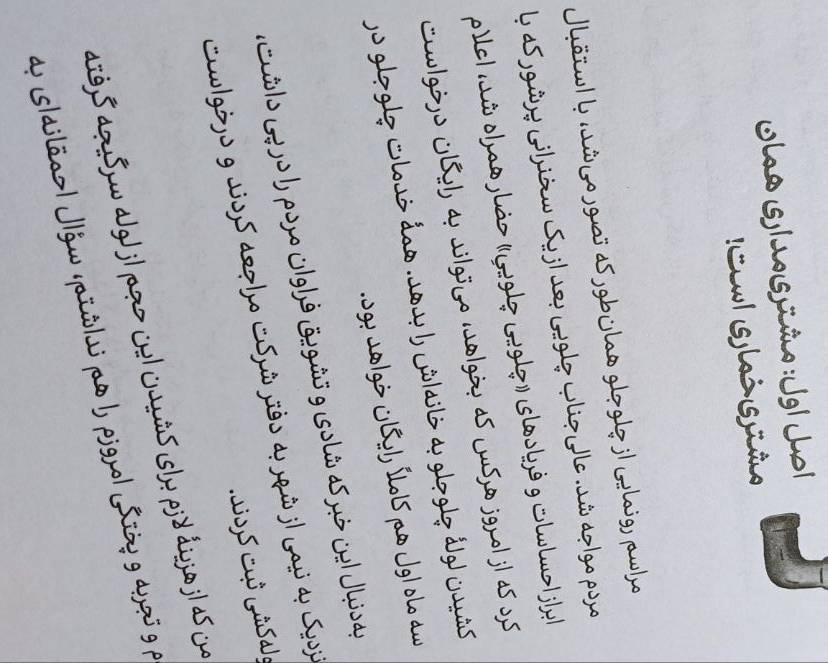 اصل اول: مشتری‌مداری همان
مشتری‌خماری است!
مراسم رونمایی از چلوچلو همان‌طور که تصور می‌شد، با استقبال
مردم مواجه شد. عالی‌جناب چلویی بعد از یک سخنرانی پرشور که با
ابراز احساسات و فریادهای «چلویی چلویی» حضار همراه شد، اعلام
کرد که از امروز هرکس که بخواهد، می‌تواند به رایگان درخواست
کشیدن لولهٔ چلوچلو به خانه‌اش را بدهد. همهٔ خدمات چلوچلو در
سه ماه اول هم کاملاً رایگان خواهد بود.
به‌دنبال این خبر که شادی و تشویق فراوان مردم را در پی داشت،
نزدیک به نیمی از شهر به دفتر شرکت مراجعه کردند و درخواست
لوله‌کشی ثبت کردند.
من که از هزینهٔ لازم برای کشیدن این حجم از لوله سرگیجه گرفته
م و تجربه و پختگی امروزم را هم نداشتم، سؤال احمقانه‌ای به